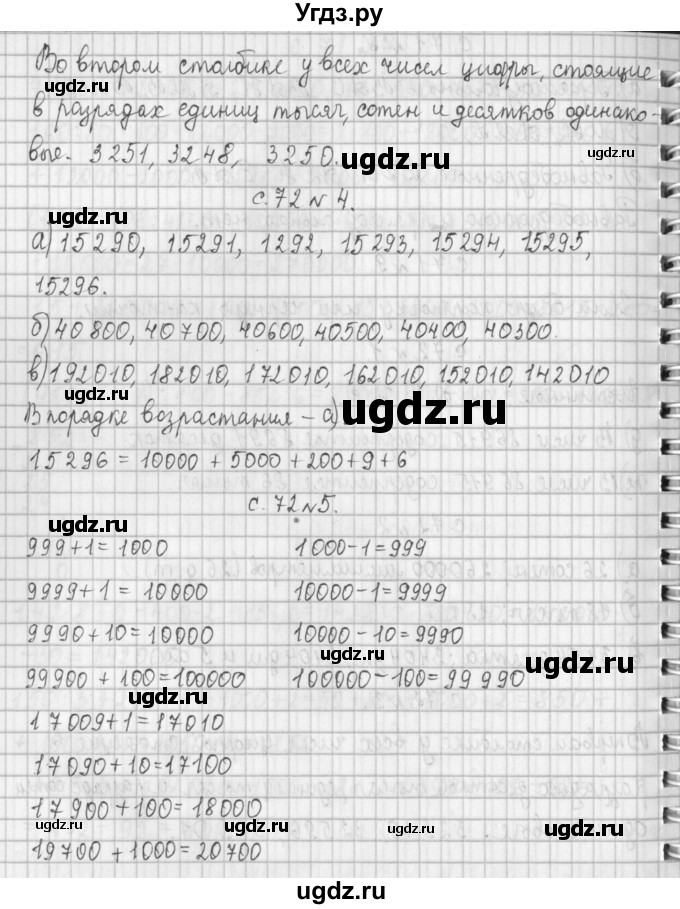 Угдз.ру
Во втором столбике у всех чисел цифры, стоящие
ugdz.ru
в разрядах единиц тысяч, сотен и десятков одинако-
вые. 3251, 3248, 3250.
ugdz.ru ugdz.ru
с. 72 № 4.
ugdz.ru
а) 15290, 15291, 1292, 15293, 15294, 15295,
ugdz.ru
15296.
ugdz.ru
б) 40800, 40700, 40600, 40500, 40400, 40300.
ugdz.ru
в) 192010, 182010, 172010, 162010, 152010, 142010
ugdz.ru
В порядке возрастания – а)
ugdz.ru
15296 = 10000 + 5000 + 200 + 9 + 6
с. 72 № 5.
ugdz.ru
999 + 1 = 1000 1000 - 1 = 999
9999 + 1 = 10000 10000 - 1 = 9999
9990 + 10 = 10000 10000 - 10 = 9990
ugdz.ru ugdz.ru
99900 + 100 = 100000 100000 - 100 = 99990
ugdz.ru
17009 + 1 = 17010
17090 + 10 = 17100
17900 + 100 = 18000
ugdz.ru ugdz.ru ugdz.ru ugdz.ru
19700 + 1000 = 20700
ugdz.ru